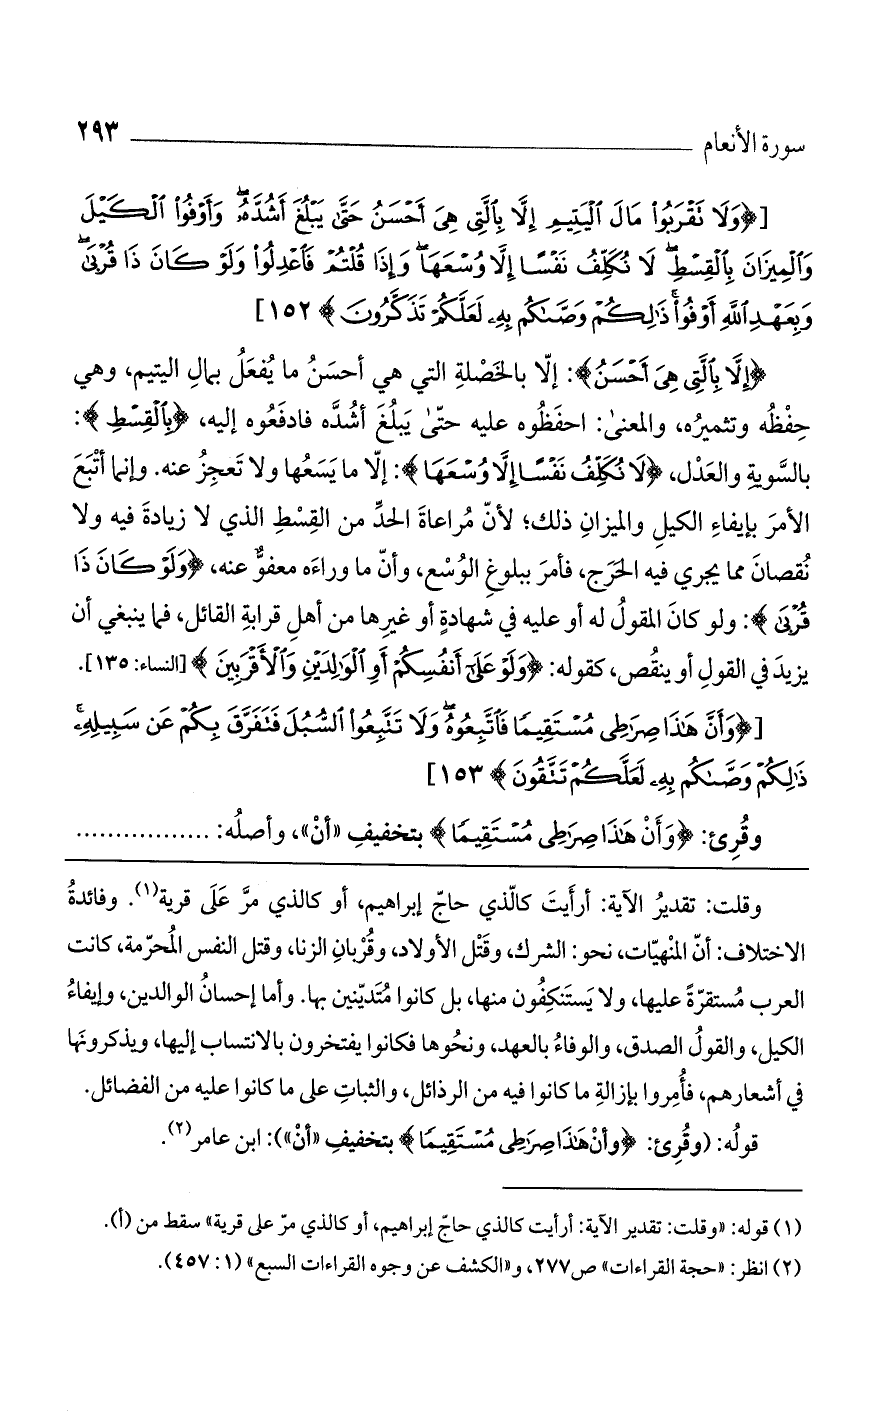 سورة الأنعام ٢٩٣
[﴿وَلَا نَقْرَبُواْ مَالَ الْيَتِيمِ إِلَّا بِالَّتِي هِيَ أَحْسَنُ حَتَّىٰ يَبْلُغَ أَشُدَّهُۥ وَأَوْفُواْ الْكَيْلَ
وَالْمِيزَانَ بِالْقِسْطِ لَا نُكَلِّفُ نَفْسًا إِلَّا وُسْعَهَا وَإِذَا قُلْتُمْ فَاعْدِلُواْ وَلَوْ كَانَ ذَا قُرْبَىٰ
وَبِعَهْدِ اللَّهِ أَوْفُواْ ذَٰلِكُمْ وَصَّىٰكُم بِهِۦ لَعَلَّكُمْ تَذَكَّرُونَ﴾ ١٥٢]
﴿إِلَّا بِالَّتِي هِيَ أَحْسَنُ﴾: إلّا بالخَصْلةِ التي هي أحسَنُ ما يُفعَلُ بمالِ اليتيم، وهي
حِفْظُه وتثميرُه، والمعنىٰ: احفَظُوه عليه حتّىٰ يَبلُغَ أشُدَّه فادفَعُوه إليه، ﴿بِالْقِسْطِ﴾:
بالسَّويةِ والعَدْل، ﴿لَا نُكَلِّفُ نَفْسًا إِلَّا وُسْعَهَا﴾: إلّا ما يَسَعُها ولا تَعجِزُ عنه. وإنما أتْبَعَ
الأمرَ بإيفاءِ الكيلِ والميزانِ ذلك؛ لأنّ مُراعاةَ الحدِّ من القِسْطِ الذي لا زيادةَ فيه ولا
نُقصانَ مما يجري فيه الحَرَج، فأمرَ ببلوغِ الوُسْع، وأنّ ما وراءَه معفوٌّ عنه، ﴿وَلَوْ كَانَ ذَا
قُرْبَىٰ﴾: ولو كانَ المقولُ له أو عليه في شهادةٍ أو غيرِها من أهلِ قرابةِ القائل، فما ينبغي أن
يزيدَ في القولِ أو ينقُص، كقوله: ﴿وَلَوْ عَلَىٰ أَنفُسِكُمْ أَوِ الْوَالِدَيْنِ وَالْأَقْرَبِينَ﴾ [النساء: ١٣٥].
[﴿وَأَنَّ هَٰذَا صِرَٰطِي مُسْتَقِيمًا فَاتَّبِعُوهُ وَلَا تَتَّبِعُواْ السُّبُلَ فَتَفَرَّقَ بِكُمْ عَن سَبِيلِهِۦ
ذَٰلِكُمْ وَصَّىٰكُم بِهِۦ لَعَلَّكُمْ تَتَّقُونَ﴾ ١٥٣]
وقُرِئ: ﴿وَأَنْ هَٰذَا صِرَٰطِي مُسْتَقِيمًا﴾ بتخفيفِ «أنْ»، وأصلُه: .................
وقلت: تقديرُ الآية: أرأَيتَ كالّذي حاجّ إبراهيم، أو كالذي مرَّ عَلَى قرية(١). وفائدةُ
الاختلاف: أنّ المنْهيّات، نحو: الشرك، وقَتْل الأولاد، وقُرْبانِ الزنا، وقتل النفس المُحرّمة، كانت
العرب مُستقرّةً عليها، ولا يَستَنكِفُون منها، بل كانوا مُتَديّنين بها. وأما إحسانُ الوالدين، وإيفاءُ
الكيل، والقولُ الصدق، والوفاءُ بالعهد، ونحُوها فكانوا يفتخرون بالانتساب إليها، ويذكرونَها
في أشعارهم، فأُمِروا بإزالةِ ما كانوا فيه من الرذائل، والثباتِ على ما كانوا عليه من الفضائل.
قولُه: (وقُرِئ: ﴿وأنْ هَٰذَا صِرَٰطِي مُسْتَقِيمًا﴾ بتخفيفِ «أنْ»): ابن عامر(٢).
(١) قوله: «وقلت: تقدير الآية: أرأيت كالذي حاجّ إبراهيم، أو كالذي مرّ على قرية» سقط من (أ).
(٢) انظر: «حجة القراءات» ص٢٧٧، و«الكشف عن وجوه القراءات السبع» (١: ٤٥٧).